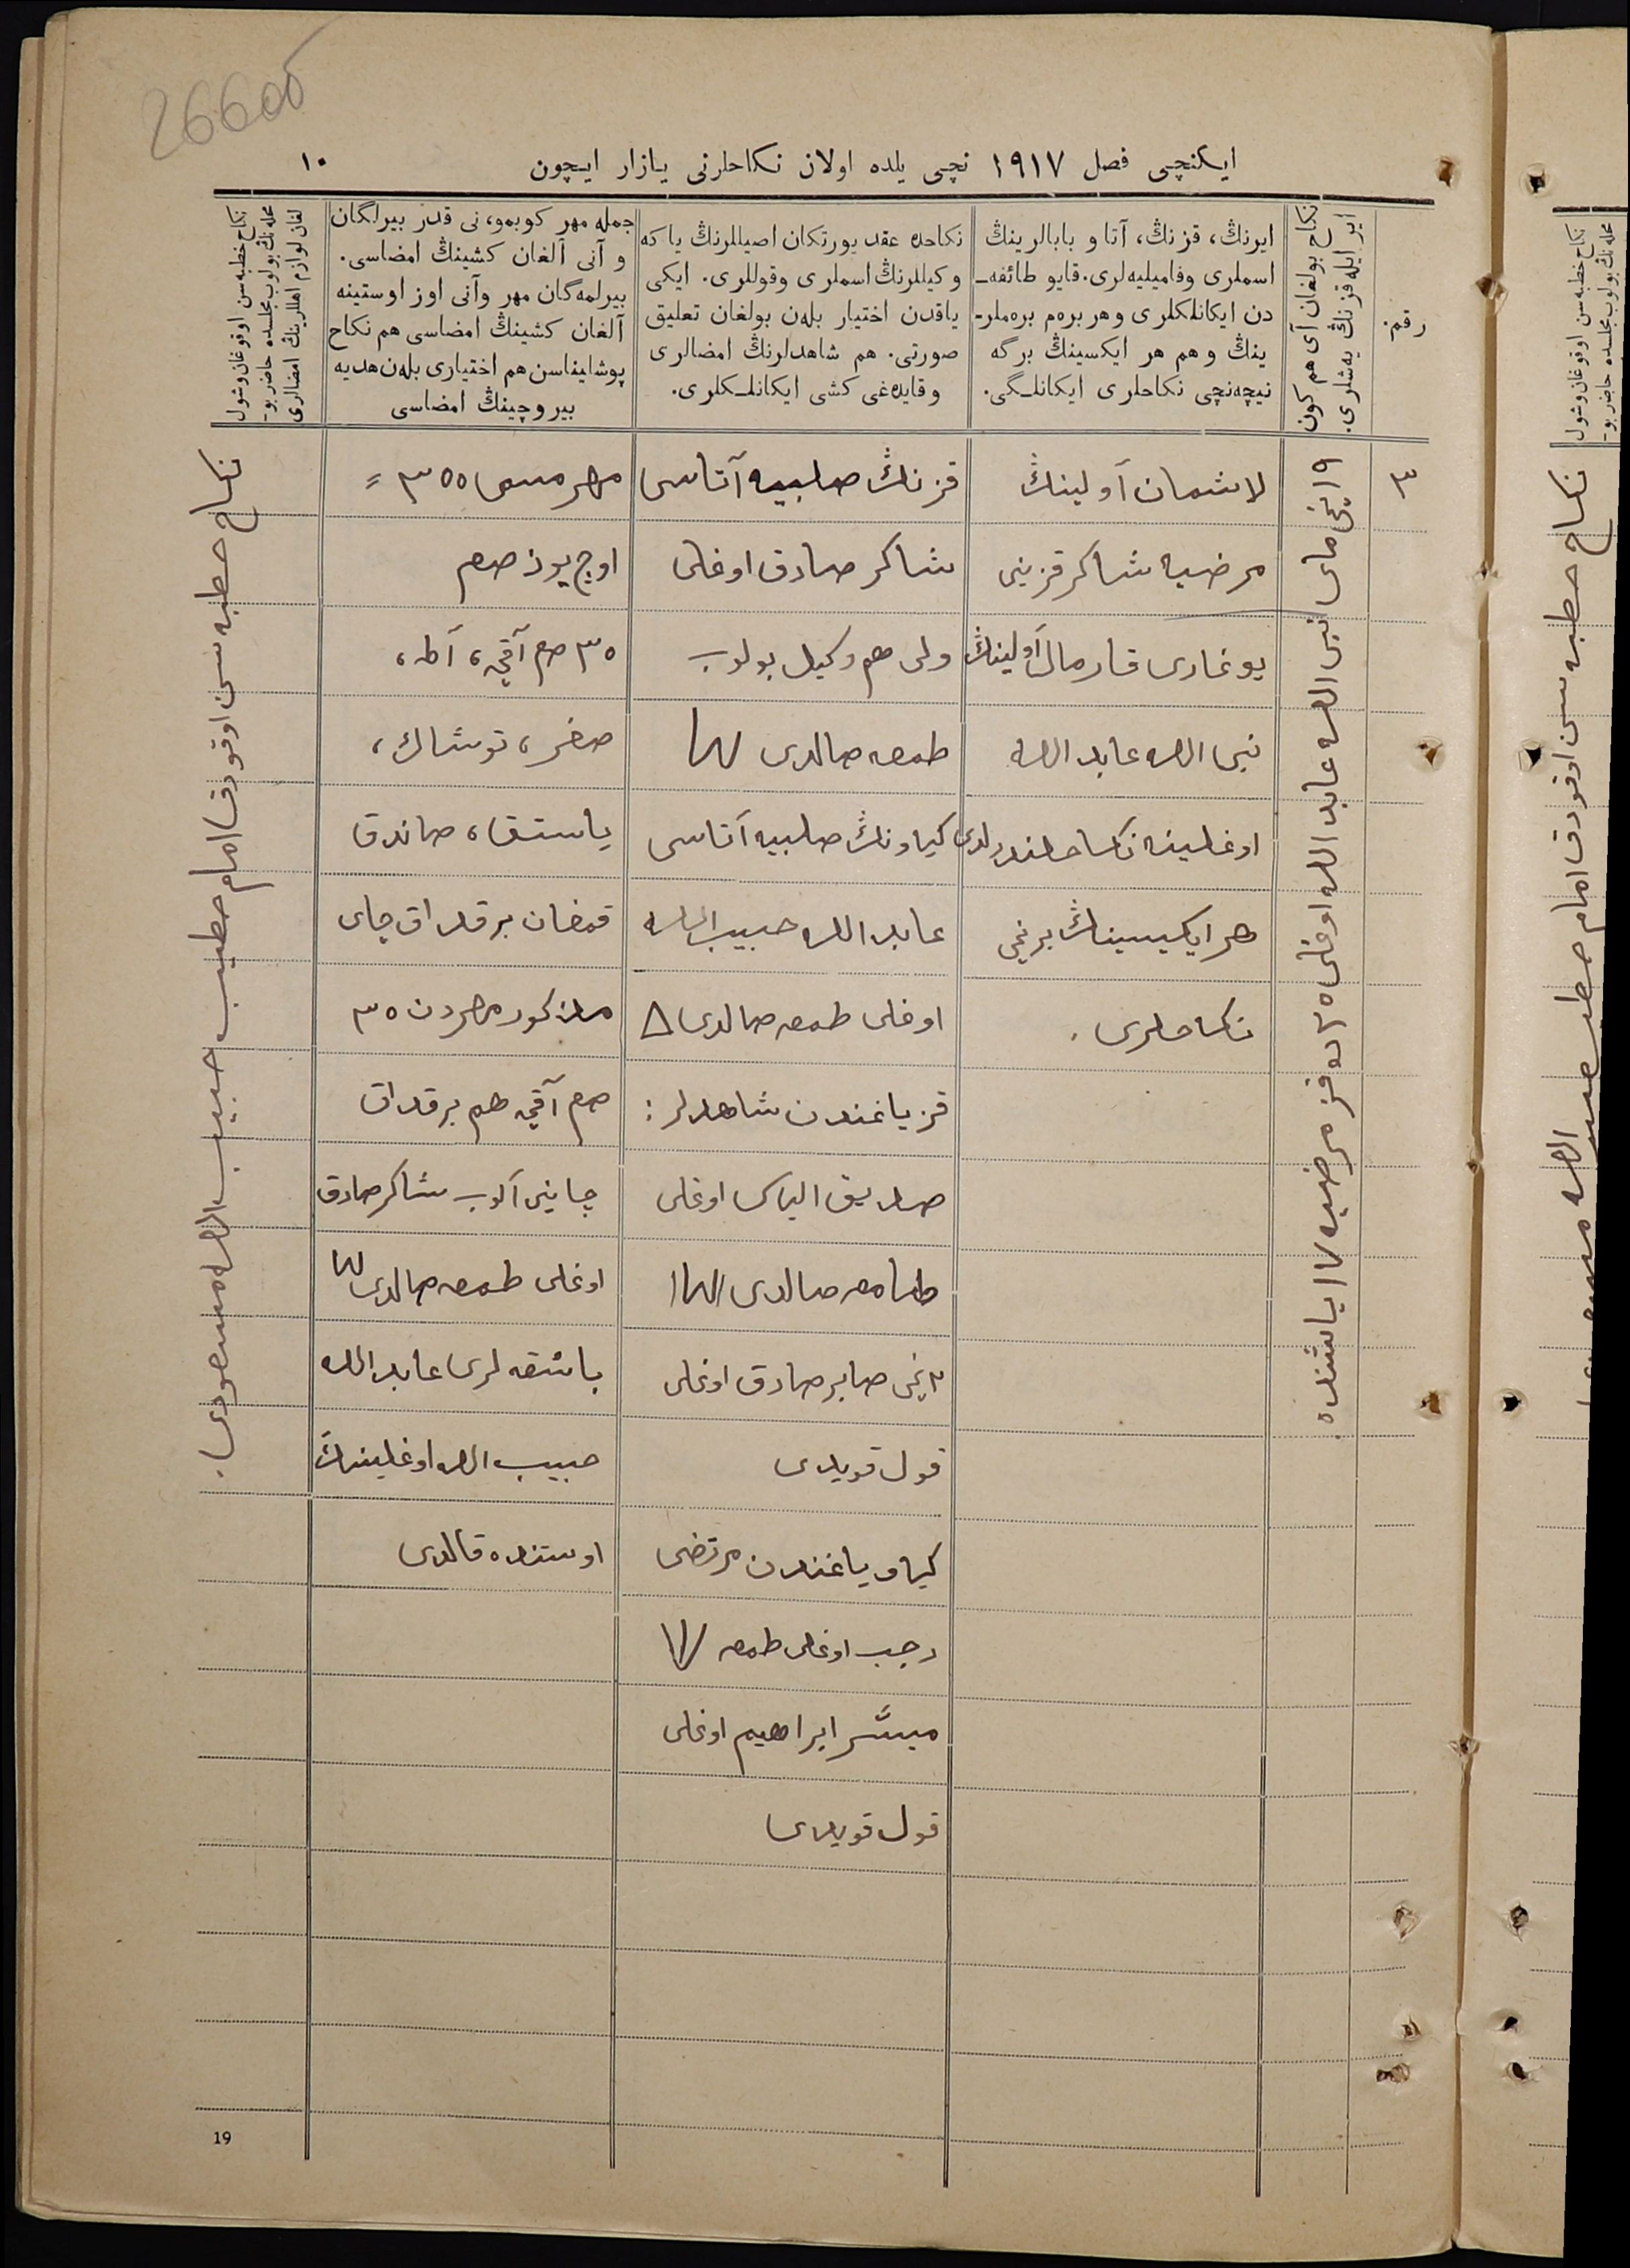 26600
ایکنچی فصل ۱۹۱۷ نچی یلده اولان نکاحلرنی یازار ایچون
۱۰
رقم
نکاح بولغان آی هم کون
ایر ایله قزنڭ یه‌شلری.
ایرنڭ، قزنڭ، آتا و بابالرینڭ
اسملری وفامیلیه‌لری. قایو طائفه‌ـ
دن ایکانلکلری وهر بره‌م بره‌ملرـ
ینڭ وهم هر ایکسینڭ برگه
نیچه‌نچی نکاحلری ایکانلـگی.
نکاحده عقد یورتکان اصیللرنڭ یا که
وکیللرنڭ اسملری وقوللری. ایکی
یاقدن اختیار بله‌ن بولغان تعلیق
صورتی. هم شاهدلرنڭ امضالری
وقایده‌غی کشی ایکانلـکلری.
جمله مهر کوبمو، نی قدر بیرلگان
و آنی آلغان کشینڭ امضاسی.
بیرلمه‌گان مهر وآنی اوز اوستینه
آلغان کشینڭ امضاسی هم نکاح
پوشلیناسن هم اختیاری بله‌ن هدیه
بیروچینڭ امضاسی
نکاح خطبه‌سن اوقوغان وشول
محله‌نڭ بولوب مجلسده حاضر بوـ
لغان لوازم اهللرینڭ امضالری
۳
۱۹ نچی مای نبی الله عابد الله اوغلی ۲۵ ده قز مرضیه ۱۷ یاشنده.
لاشمان آولینڭ
مرضیه شاکر قزینی
یوغاری قارمال آولینڭ
نبی الله عابد الله
اوغلینه نکاحلندرلدی
هر ایکیسینڭ برنچی
نکاحلری.
قزنڭ صلبیه آتاسی
شاکر صادق اوغلی
ولی هم وکیل بولوب
طمعه صالدی
کیاونڭ صلبیه آتاسی
عابد الله حبیب الله
اوغلی طمعه صالدی
قز یاغندن شاهدلر:
صدیق الیاس اوغلی
طمعه صالدی
۲ نچی صابر صادق اوغلی
قول قویدی
کیاو یاغندن مرتضی
رجب اوغلی طمعه
مبشّر ابراهیم اوغلی
قول قویدی
مهر مسمی ۳۰۰ =
اوچ یوز صم
۳۰ صم آقچه، آطه،
صغر، توشاك،
یاستق، صاندق
قمغان بر قداق چای
مذکور مهردن ۳۰
صم آقچه هم بر قداق
چاینی آلوب شاکر صادق
اوغلی طمعه صالدی
باشقه‌لری عابد الله
حبیب الله اوغلینڭ
اوستنده قالدی
نکاح خطبه‌سن اوقودق امام خطیب حبیب الله مسعودی.
19